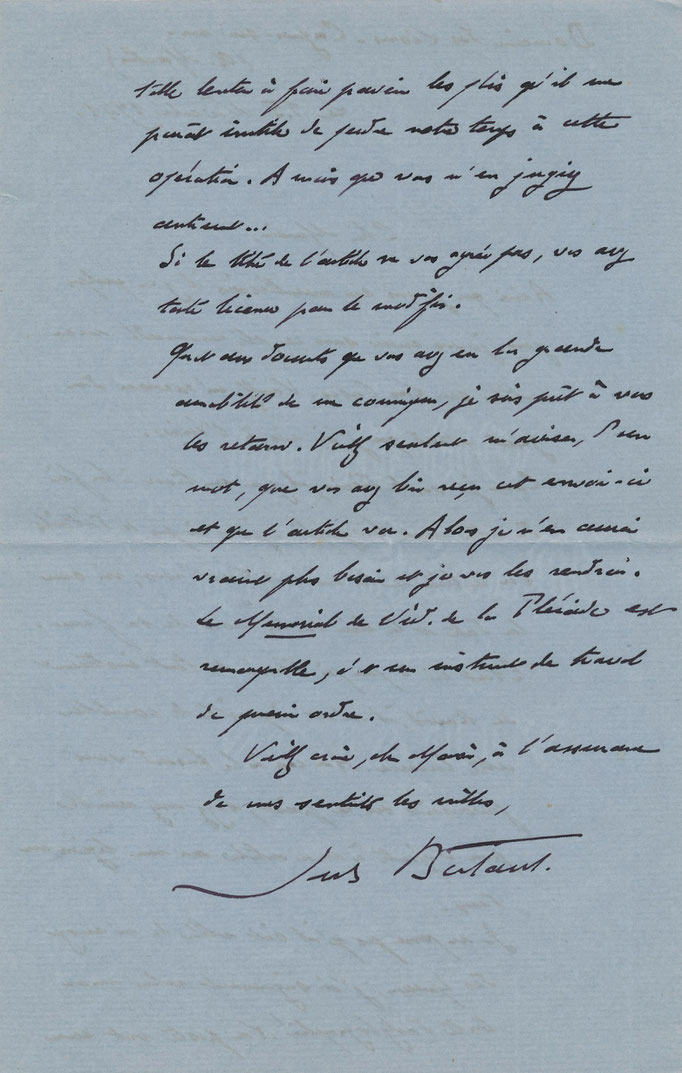 telle lenteur à faire parvenir les plis qu'il me
paraît inutile de perdre notre temps à cette
opération. A moins que vous n'en jugiez
autrement...
Si le titre de l'article ne vous agrée pas, vous avez
toute licence pour le modifier.
Quant aux documents que vous avez eu la grande
amabilité de me communiquer, je suis prêt à vous
les retourner. Veuillez seulement m'aviser, d'un
mot, que vous avez bien reçu cet envoi-ci
et que l'article va. Alors je n'en aurai
vraiment plus besoin et je vous les rendrai.
Le Memorial de l'éd. de la Pléiade est
remarquable, c'est un instrument de travail
de premier ordre.
Veuillez croire, cher Monsieur, à l'assurance
de mes sentiments les meilleurs,
Jules Bertaut.